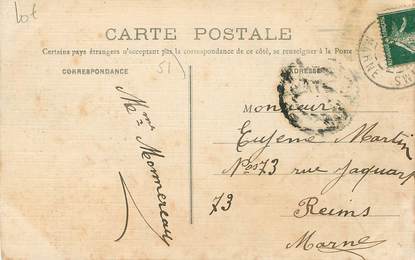 Lot
CARTE POSTALE
Certains pays étrangers n'acceptant pas la correspondance de ce côté, se renseigner à la Poste
CORRESPONDANCE
51
ADRESSE
Mme Monnereau
Monsieur
Eugene Martin
Nos 73 rue Jaquart
73
Reims
Marne
MARNE